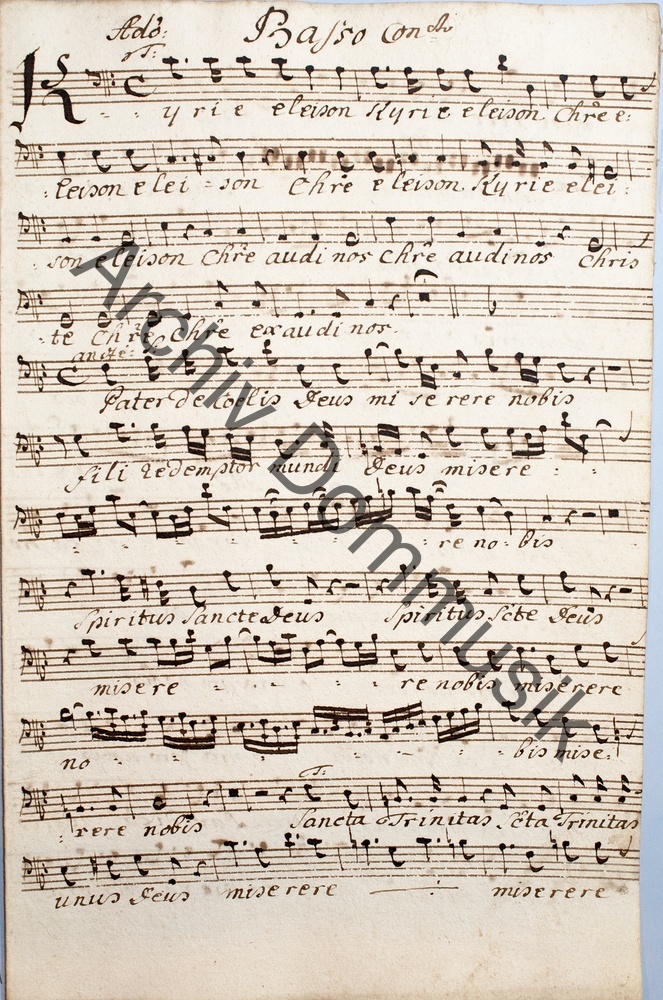 Ado: Basso Conto
T:
Kyrie eleison Kyrie eleison Chre e:
:leison elei = son Chre eleison Kyrie elei:
:son eleison Chre audi nos Chre audi nos Chris
te Chre Chre exaudi nos
andte:
Pater de Coelis Deus mi se rere nobis
fili redemptor mundi Deus misere = : :
re no: bis
Spiritus Sancte Deus Spiritus Scte Deus
misere - - - re nobis miserere
no - - - - bis mise:
T:
: rere nobis Sancta Trinitas Scta Trinitas
unus Deus miserere — : miserere
Archiv Dommusik